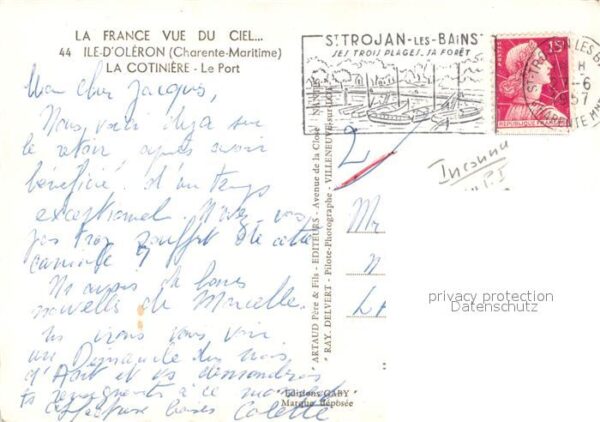 LA FRANCE VUE DU CIEL...
44 ILE-D'OLÉRON (Charente-Maritime)
LA COTINIÈRE - Le Port
Mon cher Jacques,
Nous voici déjà sur
le retour après avoir
bénéficié d'un temps
exceptionnel. N'avez-vous
pas trop souffert de cette
canicule ?
Ns avons de bonnes
nouvelles de Marcelle.
Ns irons vous voir
un Dimanche du mois
d'Août et vs demanderons
ts renseignements à ce
affectueux baisers Colette
ST TROJAN-LES-BAINS
SES TROIS PLAGES, SA FORÊT
ST TROJAN LES B
6
1957
CHARENTE MME
15F
REPUBLIQUE
2
Inconnu
ARTAUD Père & Fils - EDITEURS - Avenue de la Close - NANTES
RAY. DELVERT - Pilote-Photographe - VILLENEUVE-sur-LOT
Editions GABY
Marque déposée
Mr
privacy protection
Datenschutz